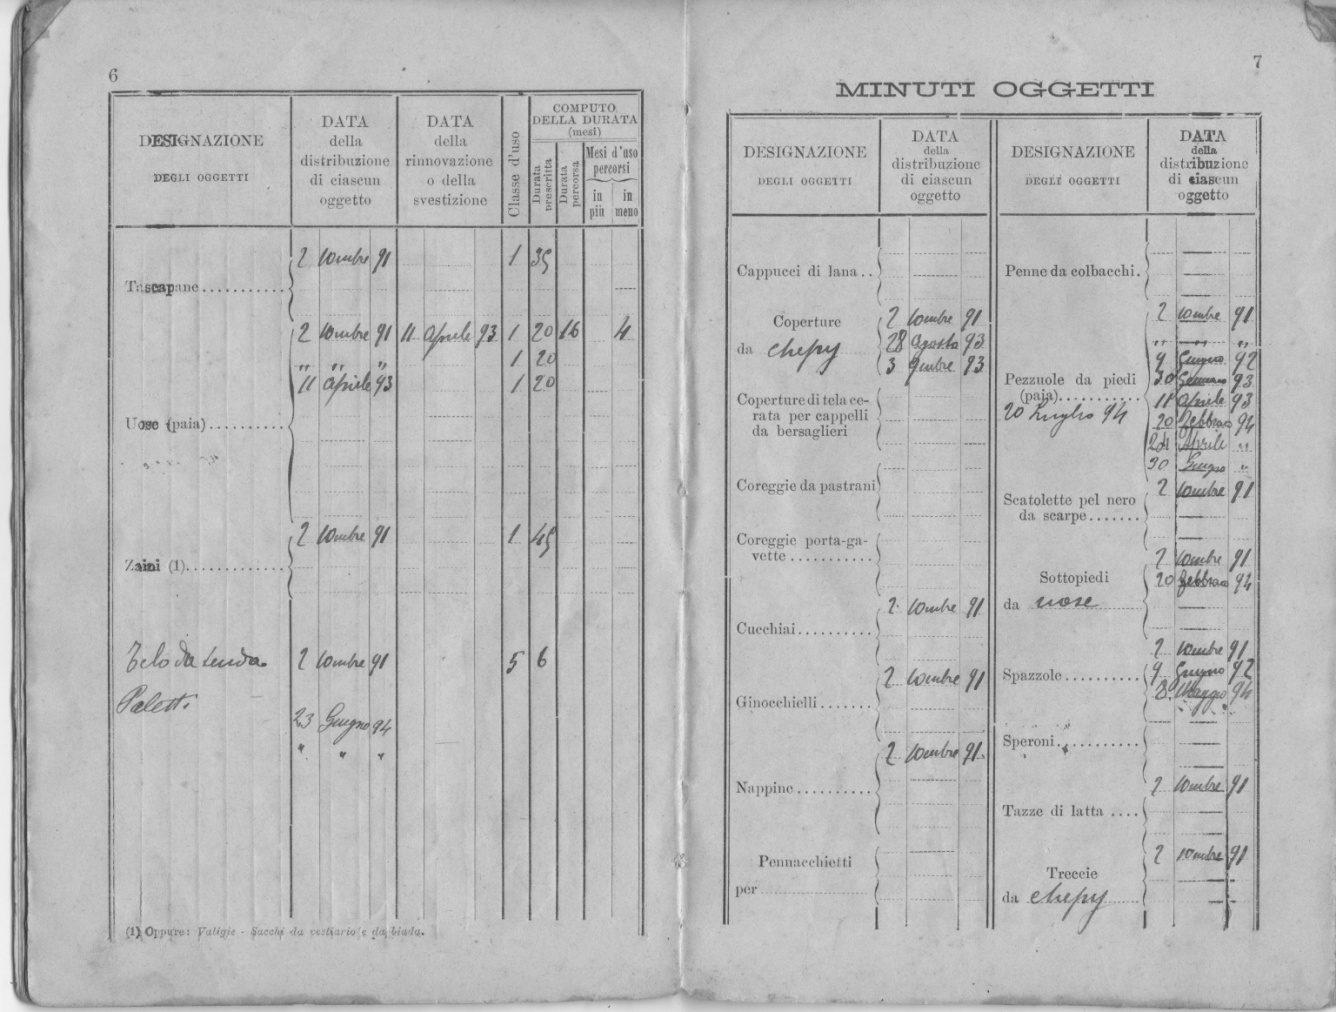 6
DESIGNAZIONE
DEGLI OGGETTI
DATA
della
distribuzione
di ciascun
oggetto
DATA
della
rinnovazione
o della
svestizione
Classe d'uso
COMPUTO
DELLA DURATA
(mesi)
Durata prescritta
Durata percorsa
Mesi d'uso
percorsi
in più
in meno
2 10mbre 91 1 35
Tascapane
2 10mbre 91 11 Aprile 93 1 20 16 4
" " " 1 20
11 Aprile 93 1 20
Uose (paia)
2 10mbre 91 1 45
Zaini (1)
Telo da tenda 2 10mbre 91 5 6
Paletti
23 Giugno 94
" " "
(1) Oppure: Valigie - Sacchi da vestiario e da biada.
7
MINUTI OGGETTI
DESIGNAZIONE
DEGLI OGGETTI
DATA
della
distribuzione
di ciascun
oggetto
Cappucci di lana
Coperture 2 10mbre 91
da chepy 28 Agosto 93
3 9mbre 93
Coperture di tela ce-
rata per cappelli
da bersaglieri
Coreggie da pastrani
Coreggie porta-ga-
vette
2 10mbre 91
Cucchiai
2 10mbre 91
Ginocchielli
2 10mbre 91
Nappine
Pennacchietti
per
DESIGNAZIONE
DEGLI OGGETTI
DATA
della
distribuzione
di ciascun
oggetto
Penne da colbacchi
2 10mbre 91
" " "
9 Giugno 92
Pezzuole da piedi 30 Gennaio 93
(paia) 11 Aprile 93
20 Luglio 94 20 Febbraio 94
24 Aprile "
30 Giugno "
2 10mbre 91
Scatolette pel nero
da scarpe
2 10mbre 91
Sottopiedi 20 Febbraio 94
da uose
2 10mbre 91
Spazzole 9 Giugno 92
8 Maggio 94
" "
Speroni
2 10mbre 91
Tazze di latta
2 10mbre 91
Treccie
da chepy